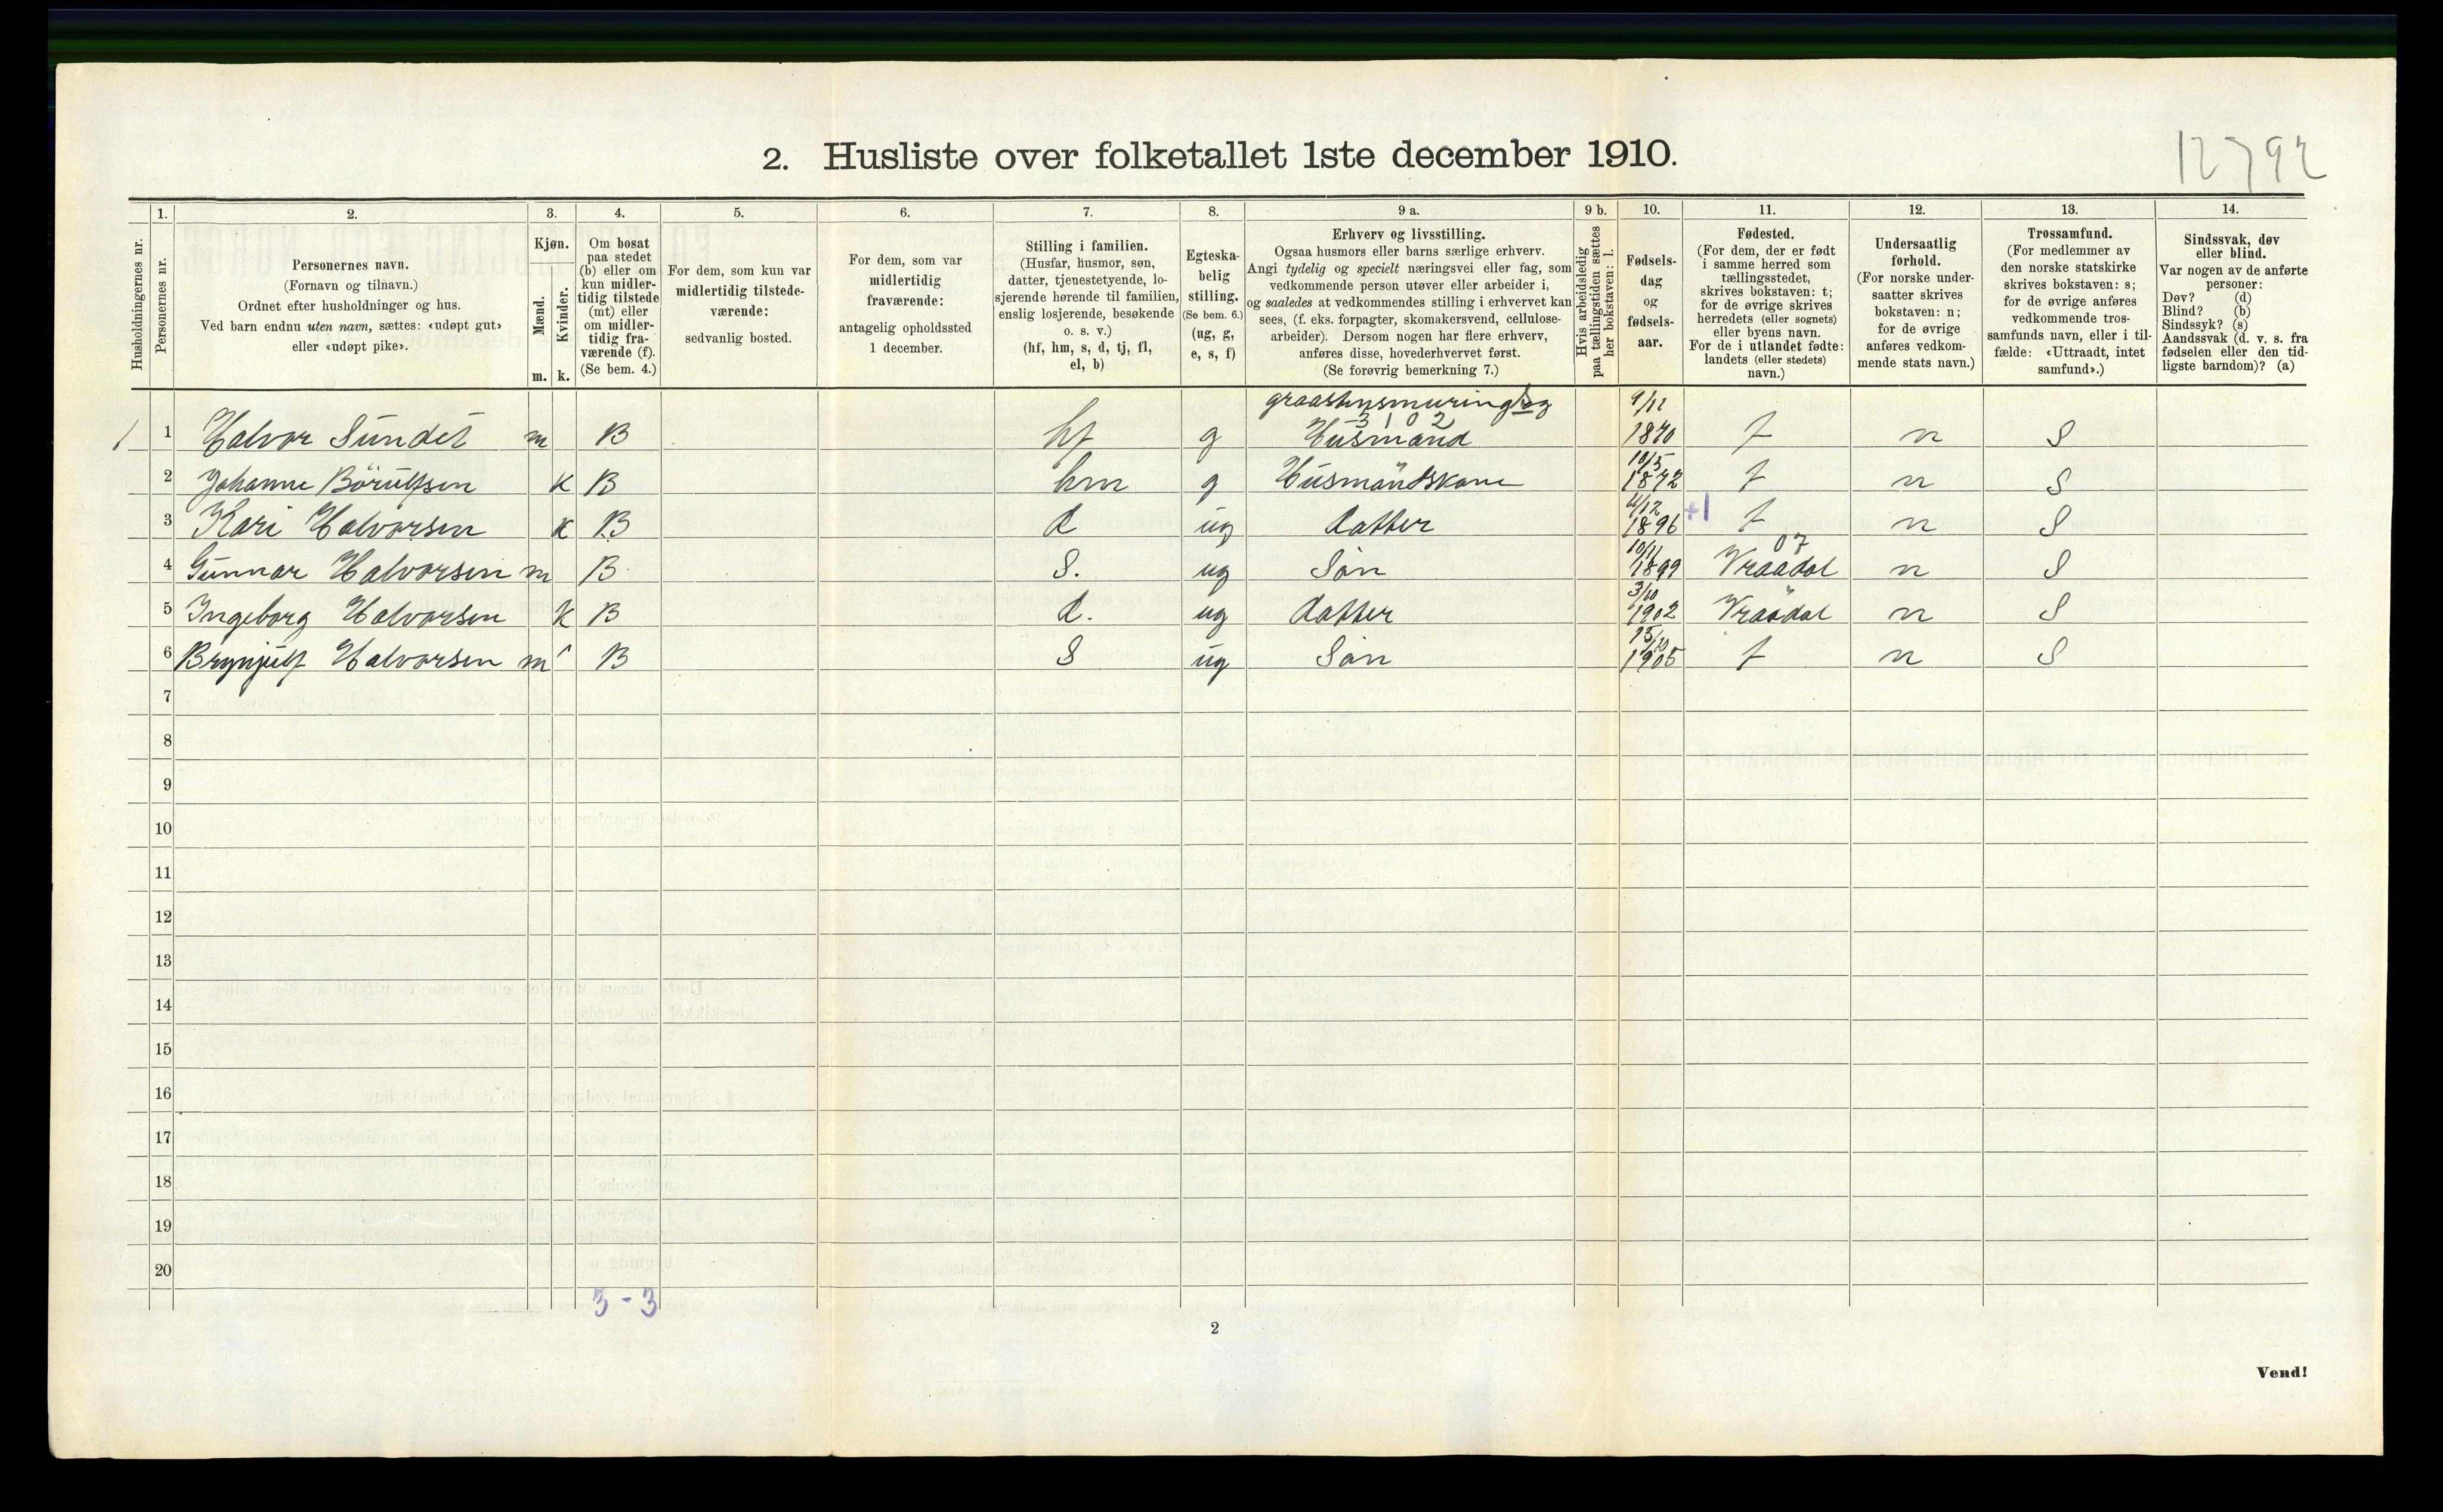 12792
2. Husliste over folketallet 1ste december 1910.
Husholdningernes nr.
1.
Personernes nr.
2.
Personernes navn.
(Fornavn og tilnavn.)
Ordnet efter husholdninger og hus.
Ved barn endnu uten navn, sættes: «udøpt gut»
eller «udøpt pike».
3.
Kjøn.
Mænd.
Kvinder.
m.
k.
4.
Om bosat
paa stedet
(b) eller om
kun midler-
tidig tilstede
(mt) eller
om midler-
tidig fra-
værende (f).
(Se bem. 4.)
5.
For dem, som kun var
midlertidig tilstede-
værende:
sedvanlig bosted.
6.
For dem, som var
midlertidig
fraværende:
antagelig opholdssted
1 december.
7.
Stilling i familien.
(Husfar, husmor, søn,
datter, tjenestetyende, lo-
sjerende hørende til familien,
enslig losjerende, besøkende
o. s. v.)
(hf, hm, s, d, tj, fl,
el, b)
8.
Egteska-
belig
stilling.
(Se bem. 6.)
(ug, g,
e, s, f)
9 a.
Erhverv og livsstilling.
Ogsaa husmors eller barns særlige erhverv.
Angi tydelig og specielt næringsvei eller fag, som
vedkommende person utøver eller arbeider i,
og saaledes at vedkommendes stilling i erhvervet kan
sees, (f. eks. forpagter, skomakersvend, cellulose-
arbeider). Dersom nogen har flere erhverv,
anføres disse, hovederhvervet først.
(Se forøvrig bemerkning 7.)
9 b.
Hvis arbeidsledig
paa tællingstiden sættes
her bokstaven: l.
10.
Fødsels-
dag
og
fødsels-
aar.
11.
Fødested.
(For dem, der er født
i samme herred som
tællingsstedet,
skrives bokstaven: t;
for de øvrige skrives
herredets (eller sognets)
eller byens navn.
For de i utlandet fødte:
landets (eller stedets)
navn.)
12.
Undersaatlig
forhold.
(For norske under-
saatter skrives
bokstaven: n;
for de øvrige
anføres vedkom-
mende stats navn.)
13.
Trossamfund.
(For medlemmer av
den norske statskirke
skrives bokstaven: s;
for de øvrige anføres
vedkommende tros-
samfunds navn, eller i til-
fælde: «Uttraadt, intet
samfund».)
14.
Sindssvak, døv
eller blind.
Var nogen av de anførte
personer:
Døv? (d)
Blind? (b)
Sindssyk? (s)
Aandssvak (d. v. s. fra
fødselen eller den tid-
ligste barndom)? (a)
3 1 0 2
1 1 Halvor Sundet m B hf g Husmand 9/11 1870 t n S
2 Johanne Börulfsen K B hm g Husmandskone 10/5 1872 t n S
3 Kari Halvorsen K B d ug datter 4/12 1896 +1 t n S
07
4 Gunnar Halvorsen m B S. ug Sön 10/11 1899 Vraadal n S
5 Ingeborg Halvorsen K B d. ug datter 3/10 1902 Vraadal n S
6 Brynjulf Halvorsen m B S ug Sön 1905 t n S
7
8
9
10
11
12
13
14
15
16
17
18
19
20
3 - 3
2
Vend!